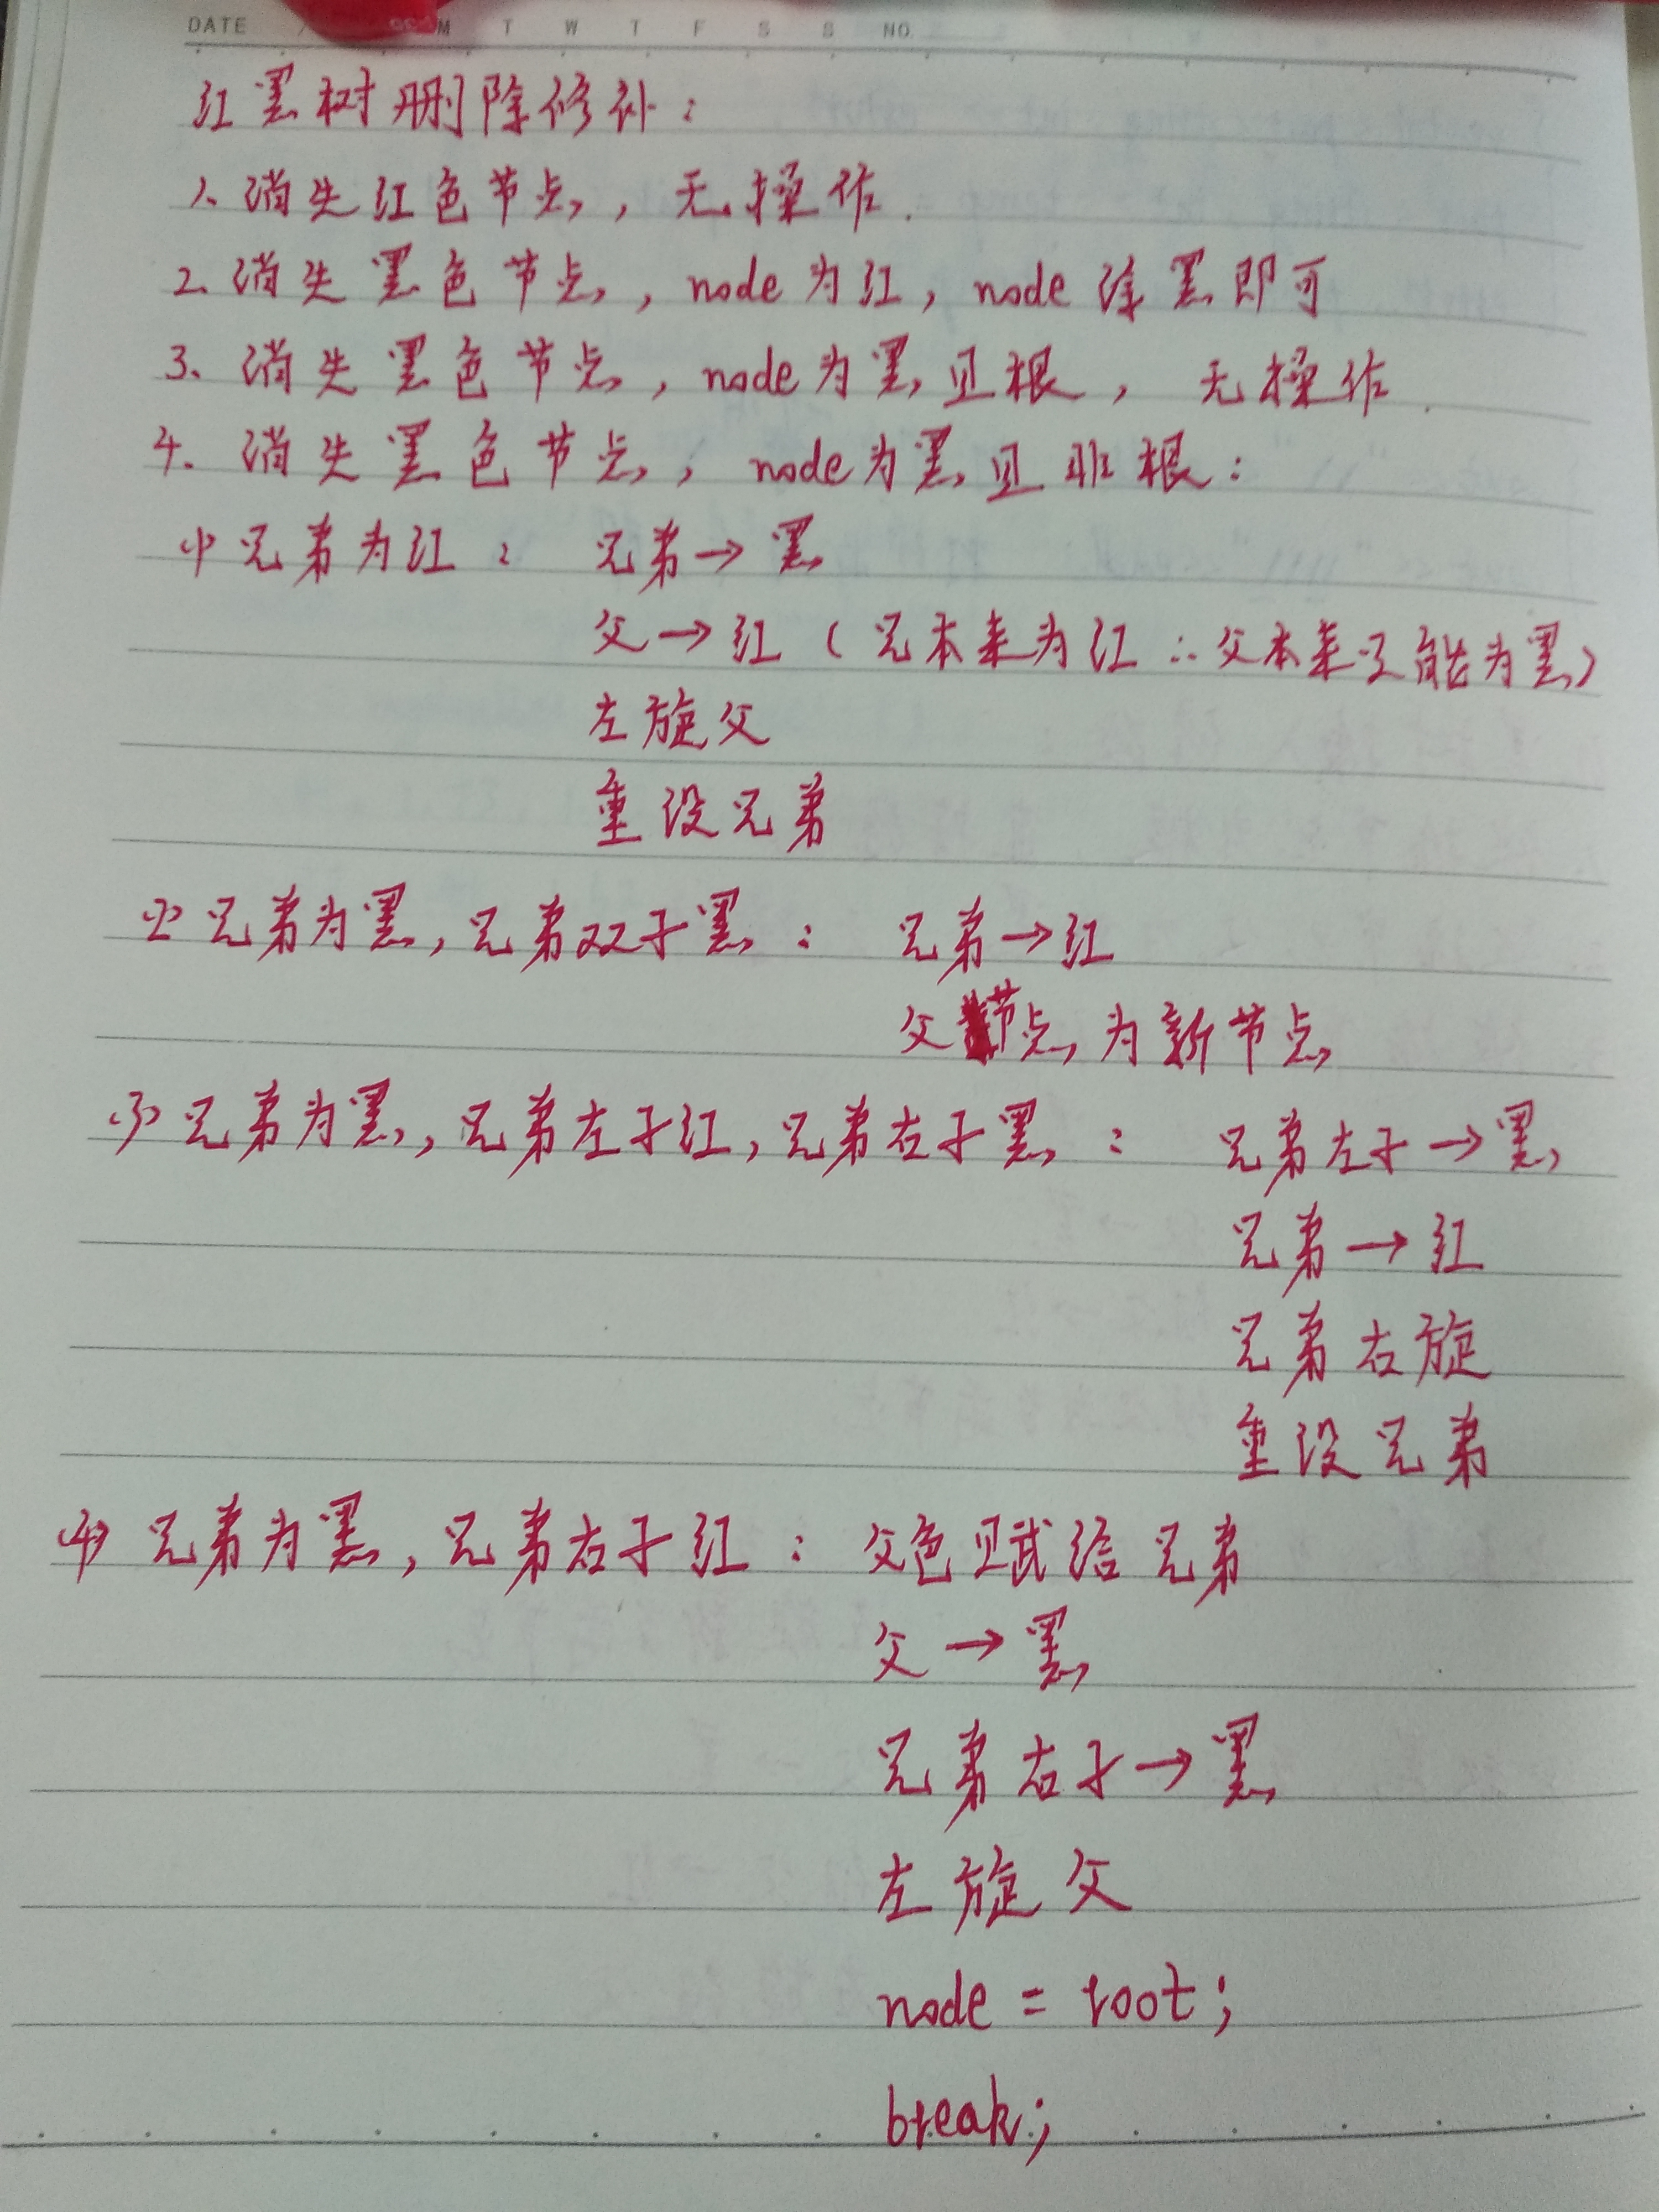 DATE M T W T F S S NO.
红黑树删除修补：
1. 消失红色节点，无操作.
2. 消失黑色节点，node为红，node涂黑即可
3. 消失黑色节点，node为黑且根，无操作.
4. 消失黑色节点，node为黑且非根：
(1) 兄弟为红： 兄弟→黑
父→红（兄本来为红∴父本来只能为黑）
左旋父
重设兄弟
(2) 兄弟为黑，兄弟双子黑： 兄弟→红
父节点为新节点
(3) 兄弟为黑，兄弟左子红，兄弟右子黑： 兄弟左子→黑
兄弟→红
兄弟右旋
重设兄弟
(4) 兄弟为黑，兄弟右子红： 父色赋给兄弟
父→黑
兄弟右子→黑
左旋父
node = root;
break;